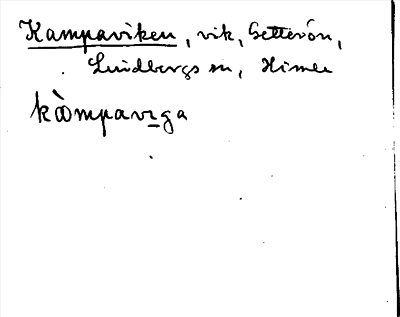 Kampaviken, vik, Getterön,
Lindbergs sn, Himle
kàmpavıga